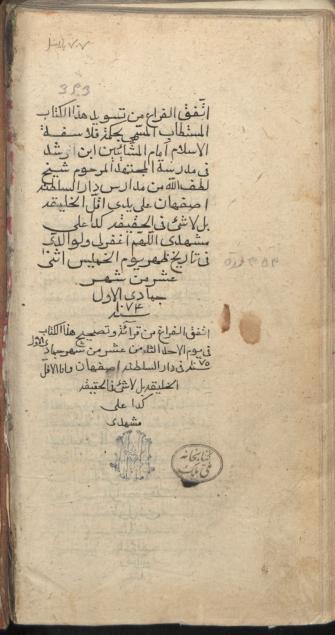 اتفق الفراغ من تسويد هذا الكتاب
المستطاب المسمى بحكمة فلاسفة
الاسلام امام المشائين ابن رشد
فى مدرسة المجتهد المرحوم شيخ
لطف الله من مدارس دار السلطنه
اصفهان على يدى اقل الخليقه
بل لاشئ فى الحقيقه كدا على
مشهدى اللهم اغفر لى ولوالدى
فى تاريخ ظهر يوم الخميس اثنى
عشر من شهر
جمادى الاول
سنه ۱۰۷۴
اتفق الفراغ من قرائة وتصحيح هذا الكتاب
فى يوم الاحد الثامن عشر من شهر جمادى الاول
۷۵ سنه فى دار السلطنه اصفهان وانا الاقل
الخليقه بل لاشئ فى الحقيقه
كدا على
مشهدى
كتابخانه
ملى ملك